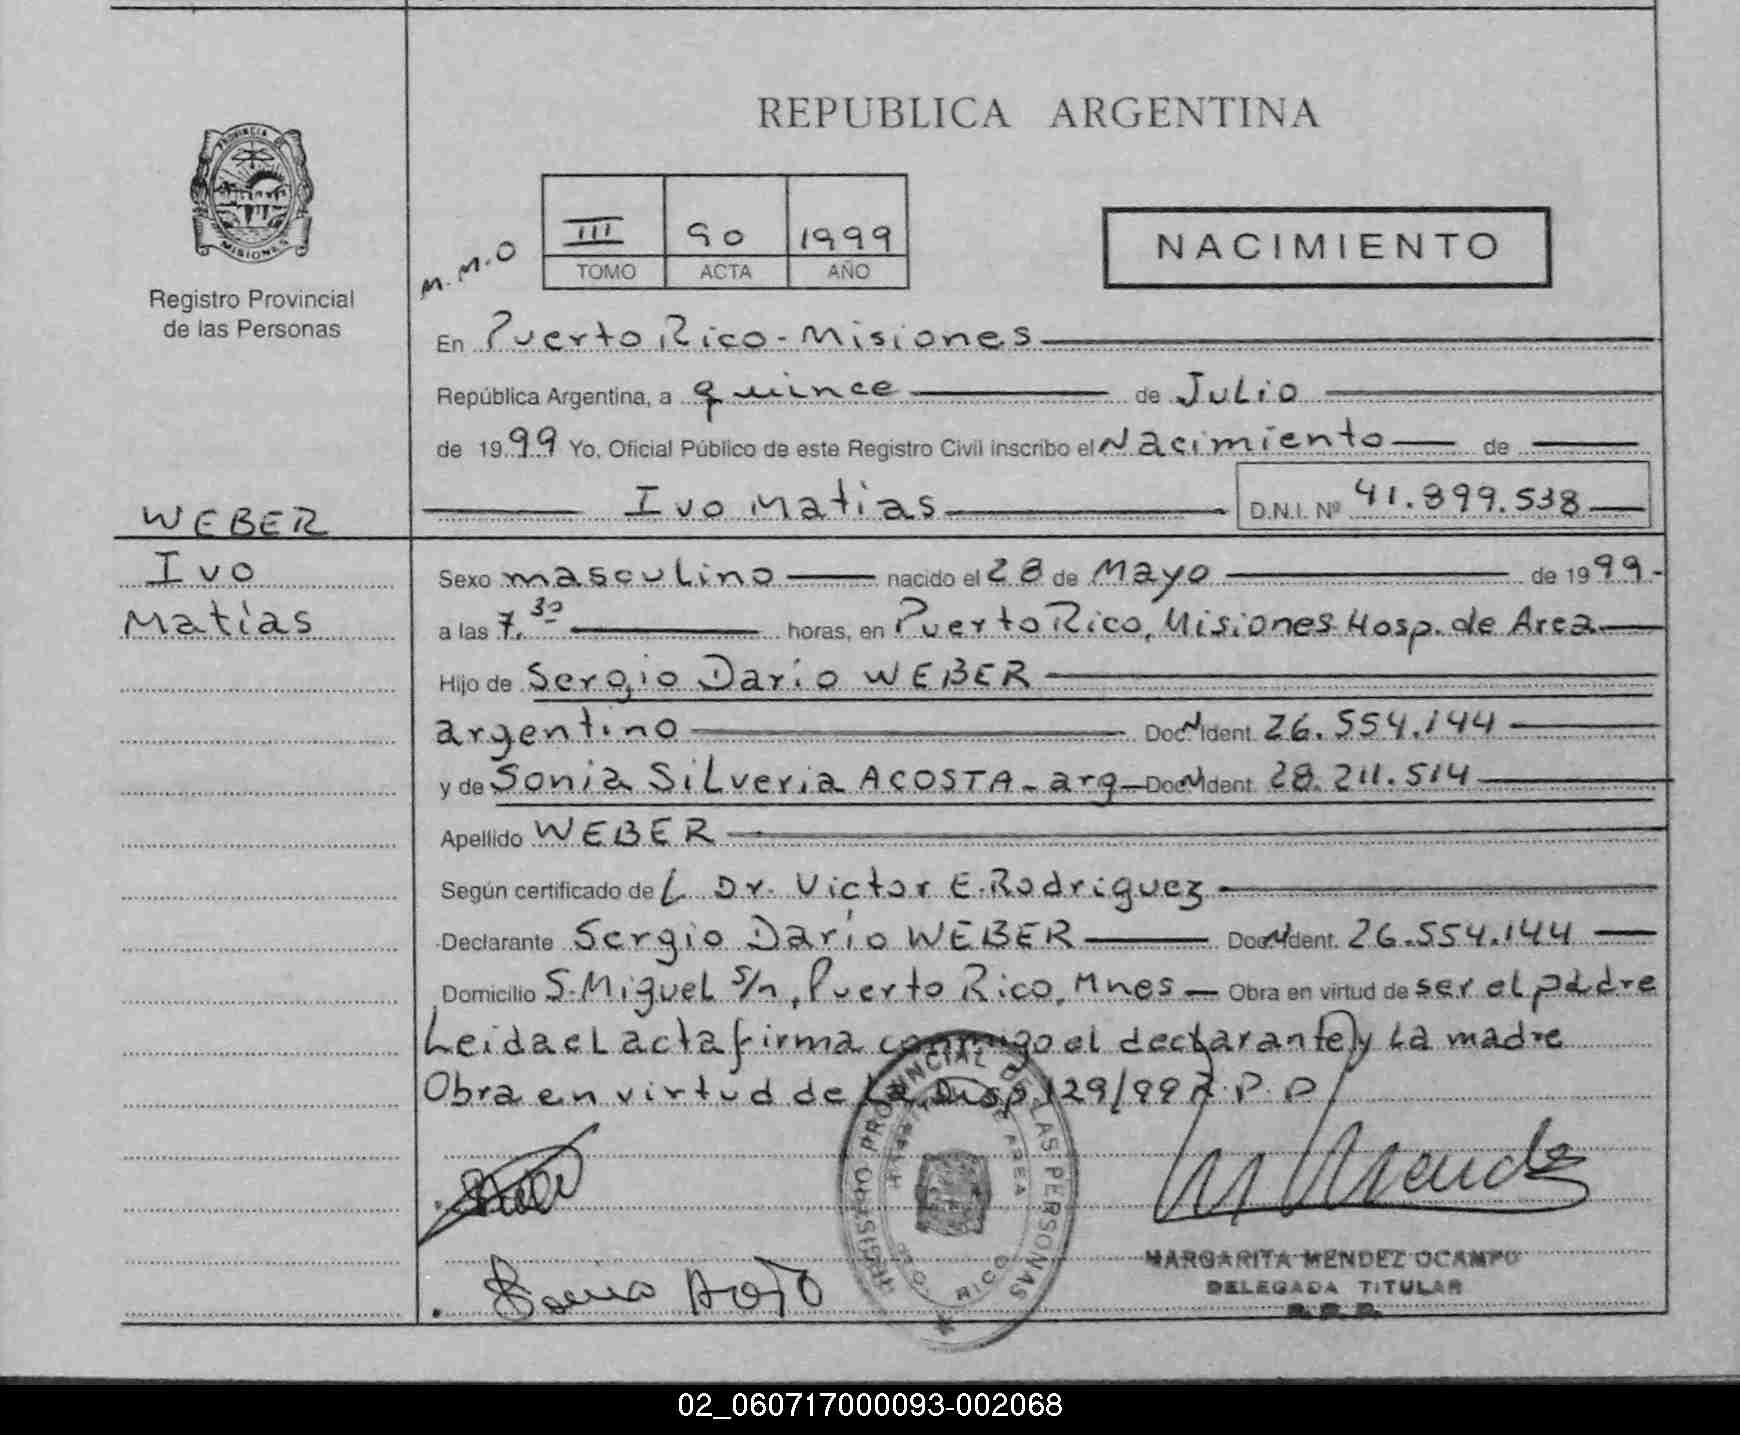 REPUBLICA ARGENTINA
PROVINCIA DE
MISIONES
Registro Provincial
de las Personas
M.M.O
III 90 1999
TOMO ACTA AÑO
NACIMIENTO
En Puerto Rico - Misiones
República Argentina, a quince de Julio
de 1999 Yo, Oficial Público de este Registro Civil inscribo el Nacimiento de
Ivo Matias D.N.I. Nº 41.899.538
WEBER
Ivo
Matías
Sexo masculino nacido el 28 de Mayo de 1999.-
a las 7.30 horas, en Puerto Rico, Misiones Hosp. de Area
Hijo de Sergio Darío WEBER
argentino Doc N Ident. 26.554.144
y de Sonia Silveria ACOSTA - arg - Doc N Ident. 28.211.514
Apellido WEBER
Según certificado de L Dr. Victor E. Rodriguez
Declarante Sergio Darío WEBER Doc N Ident. 26.554.144
Domicilio S. Miguel s/n, Puerto Rico, Mnes - Obra en virtud de ser el padre
Leida el acta firma conmigo el declarante y la madre
Obra en virtud de La Disp 129/99 R.P.P
REGISTRO PROVINCIAL DE LAS PERSONAS
AREA
PTO. RICO
MARGARITA MENDEZ OCAMPO
DELEGADA TITULAR
R.P.P.
02_060717000093-002068